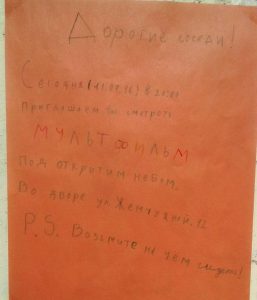 Дорогие соседи!
Сегодня (21.08.16) в 21:00
Приглашаем вы смотреть
МУЛЬТФИЛЬМ
Под открытим небом.
Во дворе ул. Жемчужной, 12
P.S. Возьмите на чём сидеть!